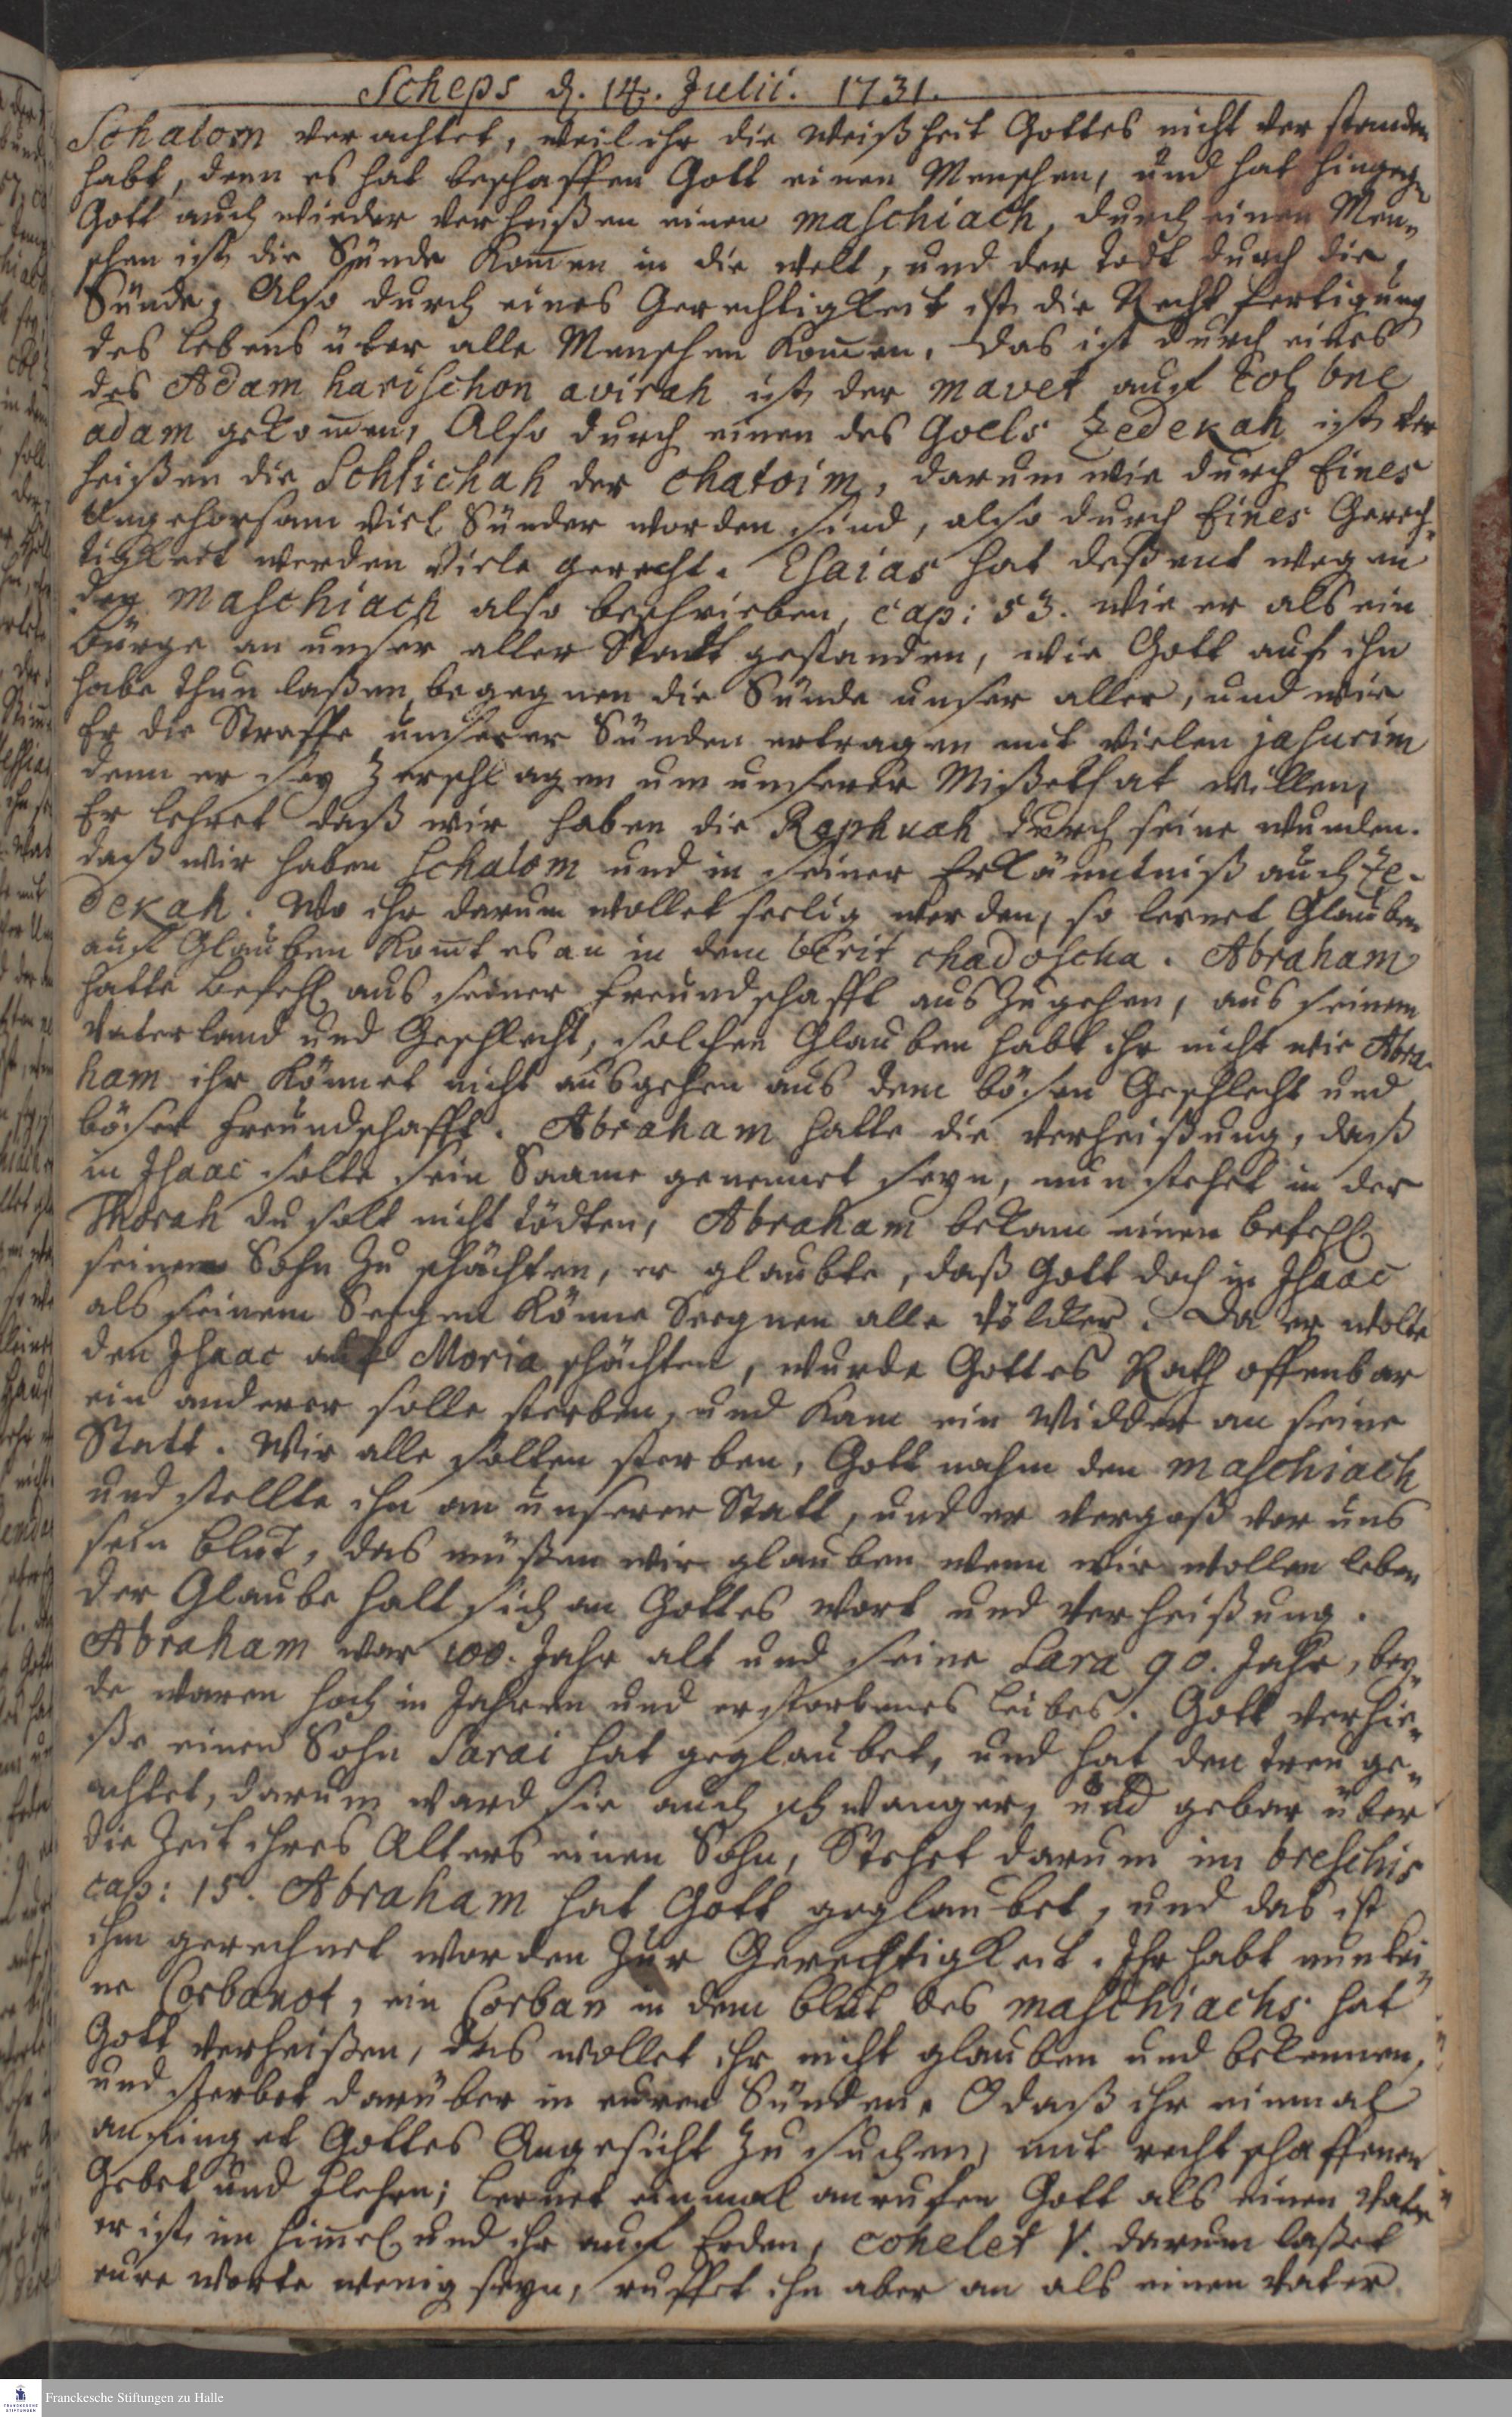 Scheps d. 14. Julii. 1731.
Schalom verachtet, weil ihr die Weißheit Gottes nicht verstanden
habt, denn es hat beschaffen Gott einen Menschen, und hat hingegen
Gott auch wieder verheißen einen maschiach, durch einen Men„
schen ist die Sünde kom̄en in die welt, und der Todt durch die
Sünde, Also durch eines Gerechtigkeit ist die Rechtfertigung
des Lebens über alle Menschen kom̄en. Das ist durch eines
des Adam harischon avirah ist der mavet auf kol bne
adam gekom̄en, Also durch einen des Goels Zedekah ist ver
heißen die Schlichah der chatoim, darum wie durch Eines
Ungehorsam viel Sünder worden sind, also durch Eines Gerech„
tigkeit werden Viele gerecht. Esaias hat deßentwegen
den maschiach also beschrieben, cap: 53. wie er als ein
Bürge an unser aller Statt gestanden, wie Gott auf ihn
habe thun laßen begegnen die Sünde unser aller, und wie
Er die Straffe unserer Sünden ertragen mit vielen jasurim
denn er sey zerschlagen um unserer Mißethat willen,
Er lehret daß wir haben die Raphuah durch seine wunden.
daß wir haben Schalom und in seiner Erkänntniß auch Ze-
dekah. Wo ihr darum wollet seelig werden, so lernet Glauben
auf Glauben kom̄t es an in dem berit chadoscha. Abraham
hatte Befehl aus seiner Freundschafft auszugehen, aus seinem
Vaterland und Geschlecht, solchen Glauben habt ihr nicht wie Abra-
ham ihr könnet nicht ausgehen aus dem bösen Geschlecht und
böser Freundschafft. Abraham hatte die Verheißung, daß
in Isaac solte sein Saame genennet seyn, nun stehet in der
Thorah du solt nicht tödten, Abraham bekam einen befehl
seinen Sohn zu schächten, er glaubte, daß Gott doch in Isaac
als seinem Seegen könne Seegnen alle Völcker. Da er wolte
den Isaac auf Moria schächten, wurde Gottes Rath offenbar
ein anderer solle sterben, und kam ein Widder an seine
Statt. Wir alle solten sterben, Gott nahm den maschiach
und stellte ihn an unserer Statt, und er vergoß vor uns
sein Blut, das müßen wir glauben wenn wir wollen leben
der Glaube halt sich an Gottes Wort und Verheißung.
Abraham war 100. Jahr alt und seine Sara 90. Jahr, bey„
de waren hoch in Jahren und erstorbenes Leibes. Gott verhie„
ße einen Sohn Sarai hat geglaubet, und hat den treu ge„
achtet, darum ward sie auch schwanger, und gebar über
die Zeit ihres Alters einen Sohn, Stehet darum im breschis
cap: 15. Abraham hat Gott geglaubet, und das ist
ihm gerechnet worden zur Gerechtigkeit. Ihr habt nun kei„
ne Corbanot, ein Corban in dem Blut des maschiachs hat
Gott verheißen, das wollet ihr nicht glauben und bekennen,
und sterbet darüber in euren Sünden. O daß ihr einmal
anfinget Gottes Angesicht zu suchen, mit rechtschaffenen
Gebet und Flehen; lernet einmal anrufen Gott als einen Vater
er ist im Him̄el und ihr auf Erden, cohelet V. darum laßet
eure Worte wenig seyn, ruffet ihn aber an als einen Vater
Franckesche Stiftungen zu Halle